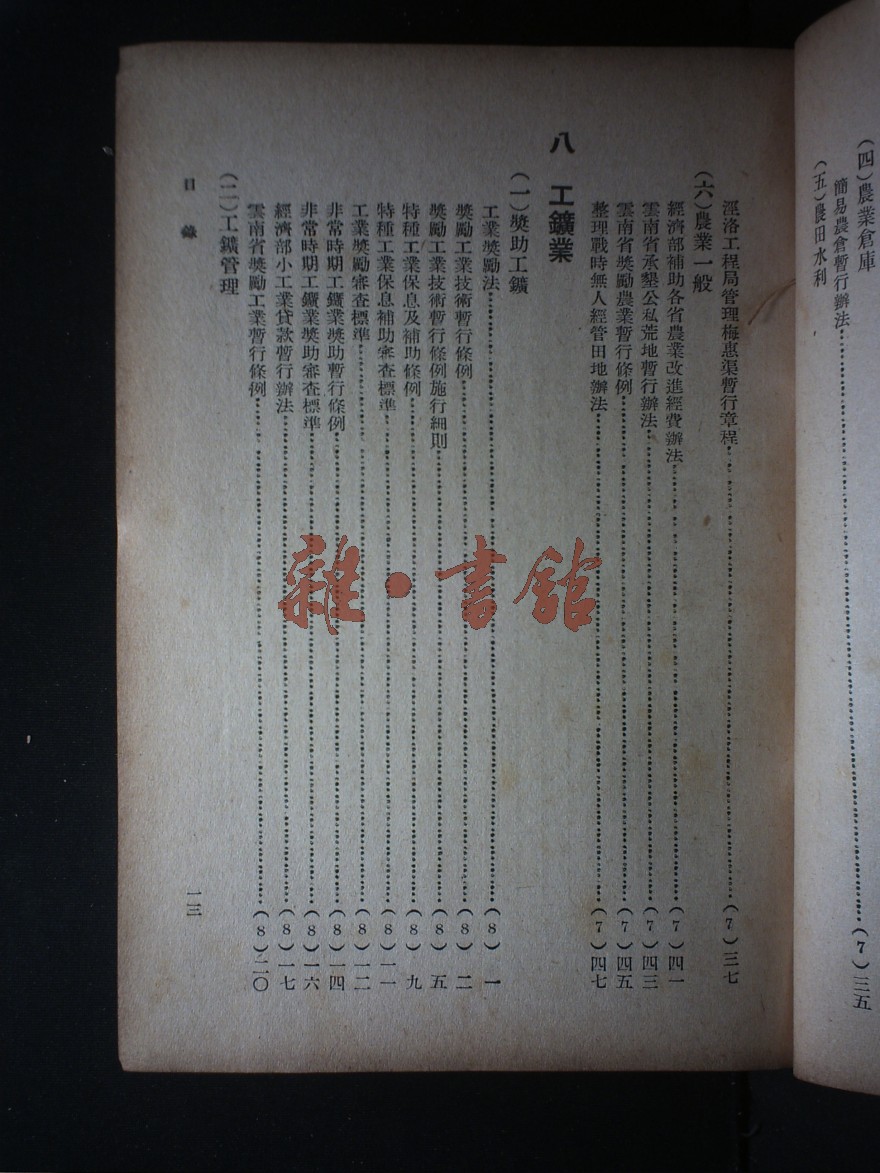 (四)農業倉庫
簡易農倉暫行辦法……(7)三五
(五)農田水利
涇洛工程局管理梅惠渠暫行章程……(7)三七
(六)農業一般
經濟部補助各省農業改進經費辦法……(7)四一
雲南省承墾公私荒地暫行辦法……(7)四三
雲南省獎勵農業暫行條例……(7)四五
整理戰時無人經管田地辦法……(7)四七
八 工鑛業
(一)獎助工鑛
工業獎勵法……(8)一
獎勵工業技術暫行條例……(8)二
獎勵工業技術暫行條例施行細則……(8)五
特種工業保息及補助條例……(8)九
特種工業保息補助審查標準……(8)一一
工業獎勵審查標準……(8)一二
非常時期工鑛業獎助暫行條例……(8)一四
非常時期工鑛業獎助審查標準……(8)一六
經濟部小工業貸款暫行辦法……(8)一七
雲南省獎勵工業暫行條例……(8)二〇
(二)工鑛管理
目錄
一三
雜·書館